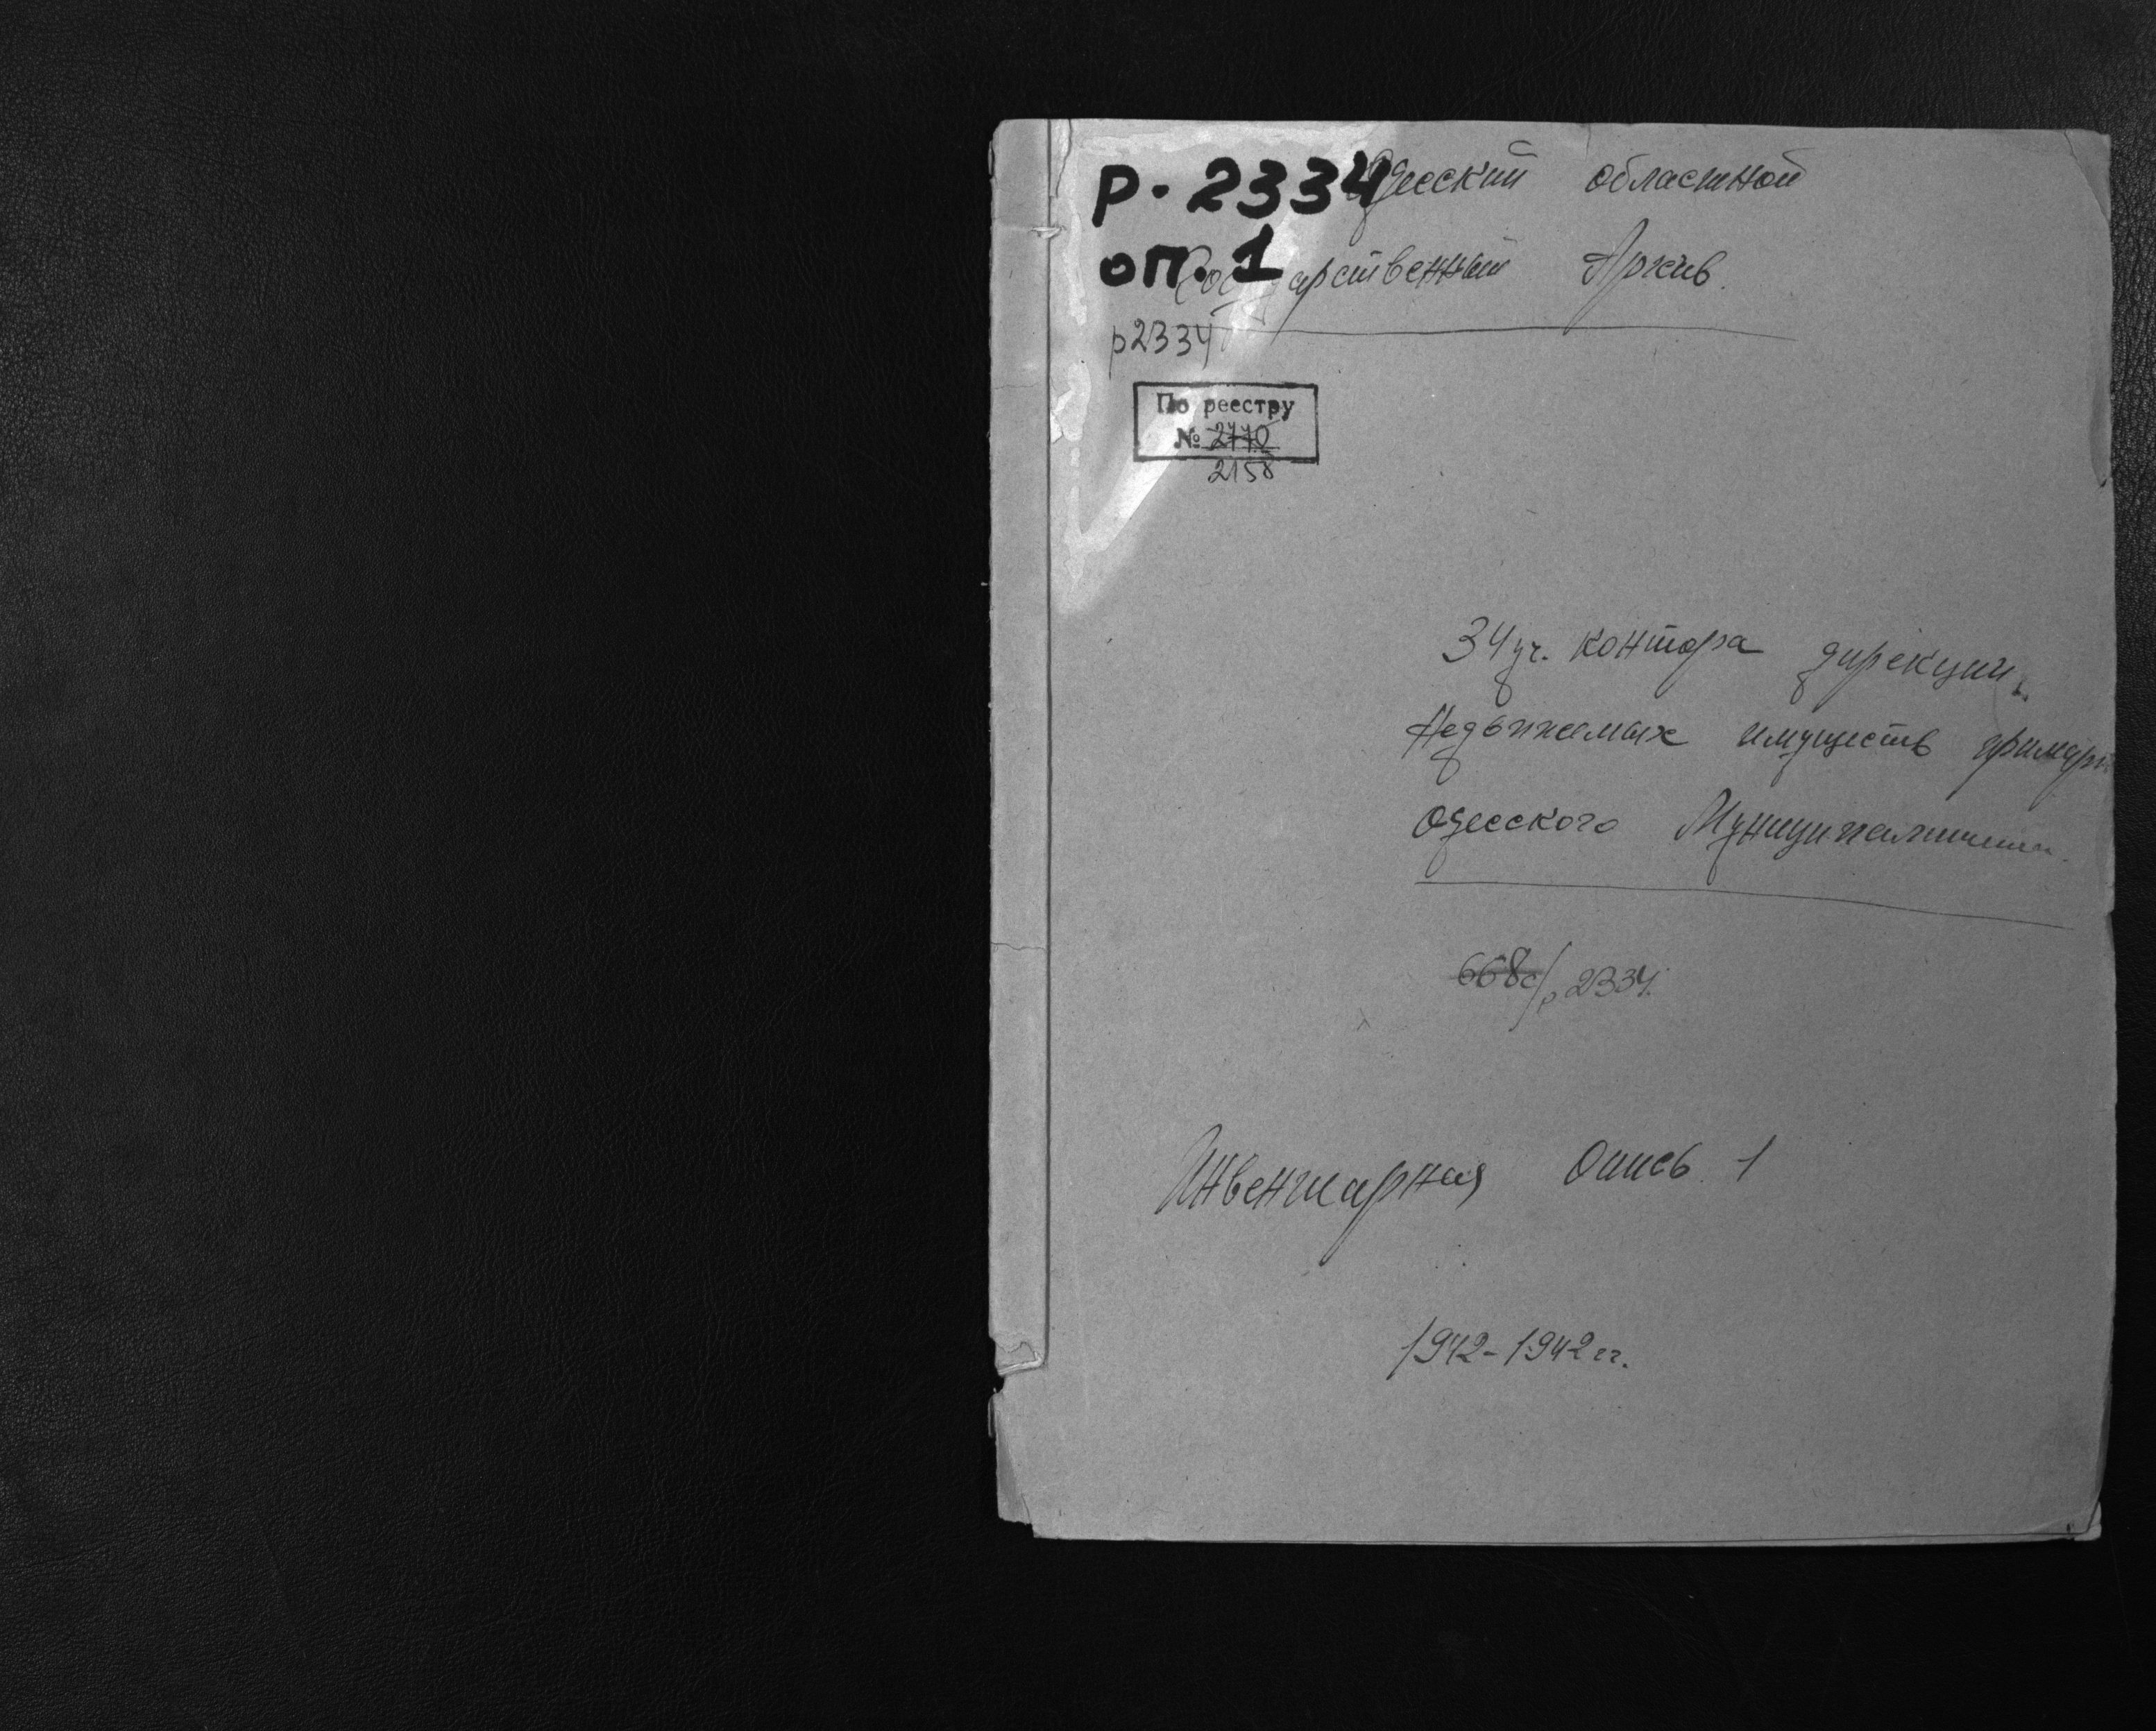 Р. 2334 Одесский областной
оп. 1 Государственный Архив.
р2334
По реестру
№ 2770
2158
34 уч. контора дирекции
Недвижимых имуществ примари
Одесского Муниципалитета.
668с/р 2334.
Инвентарная Опись 1
1942-1942 гг.